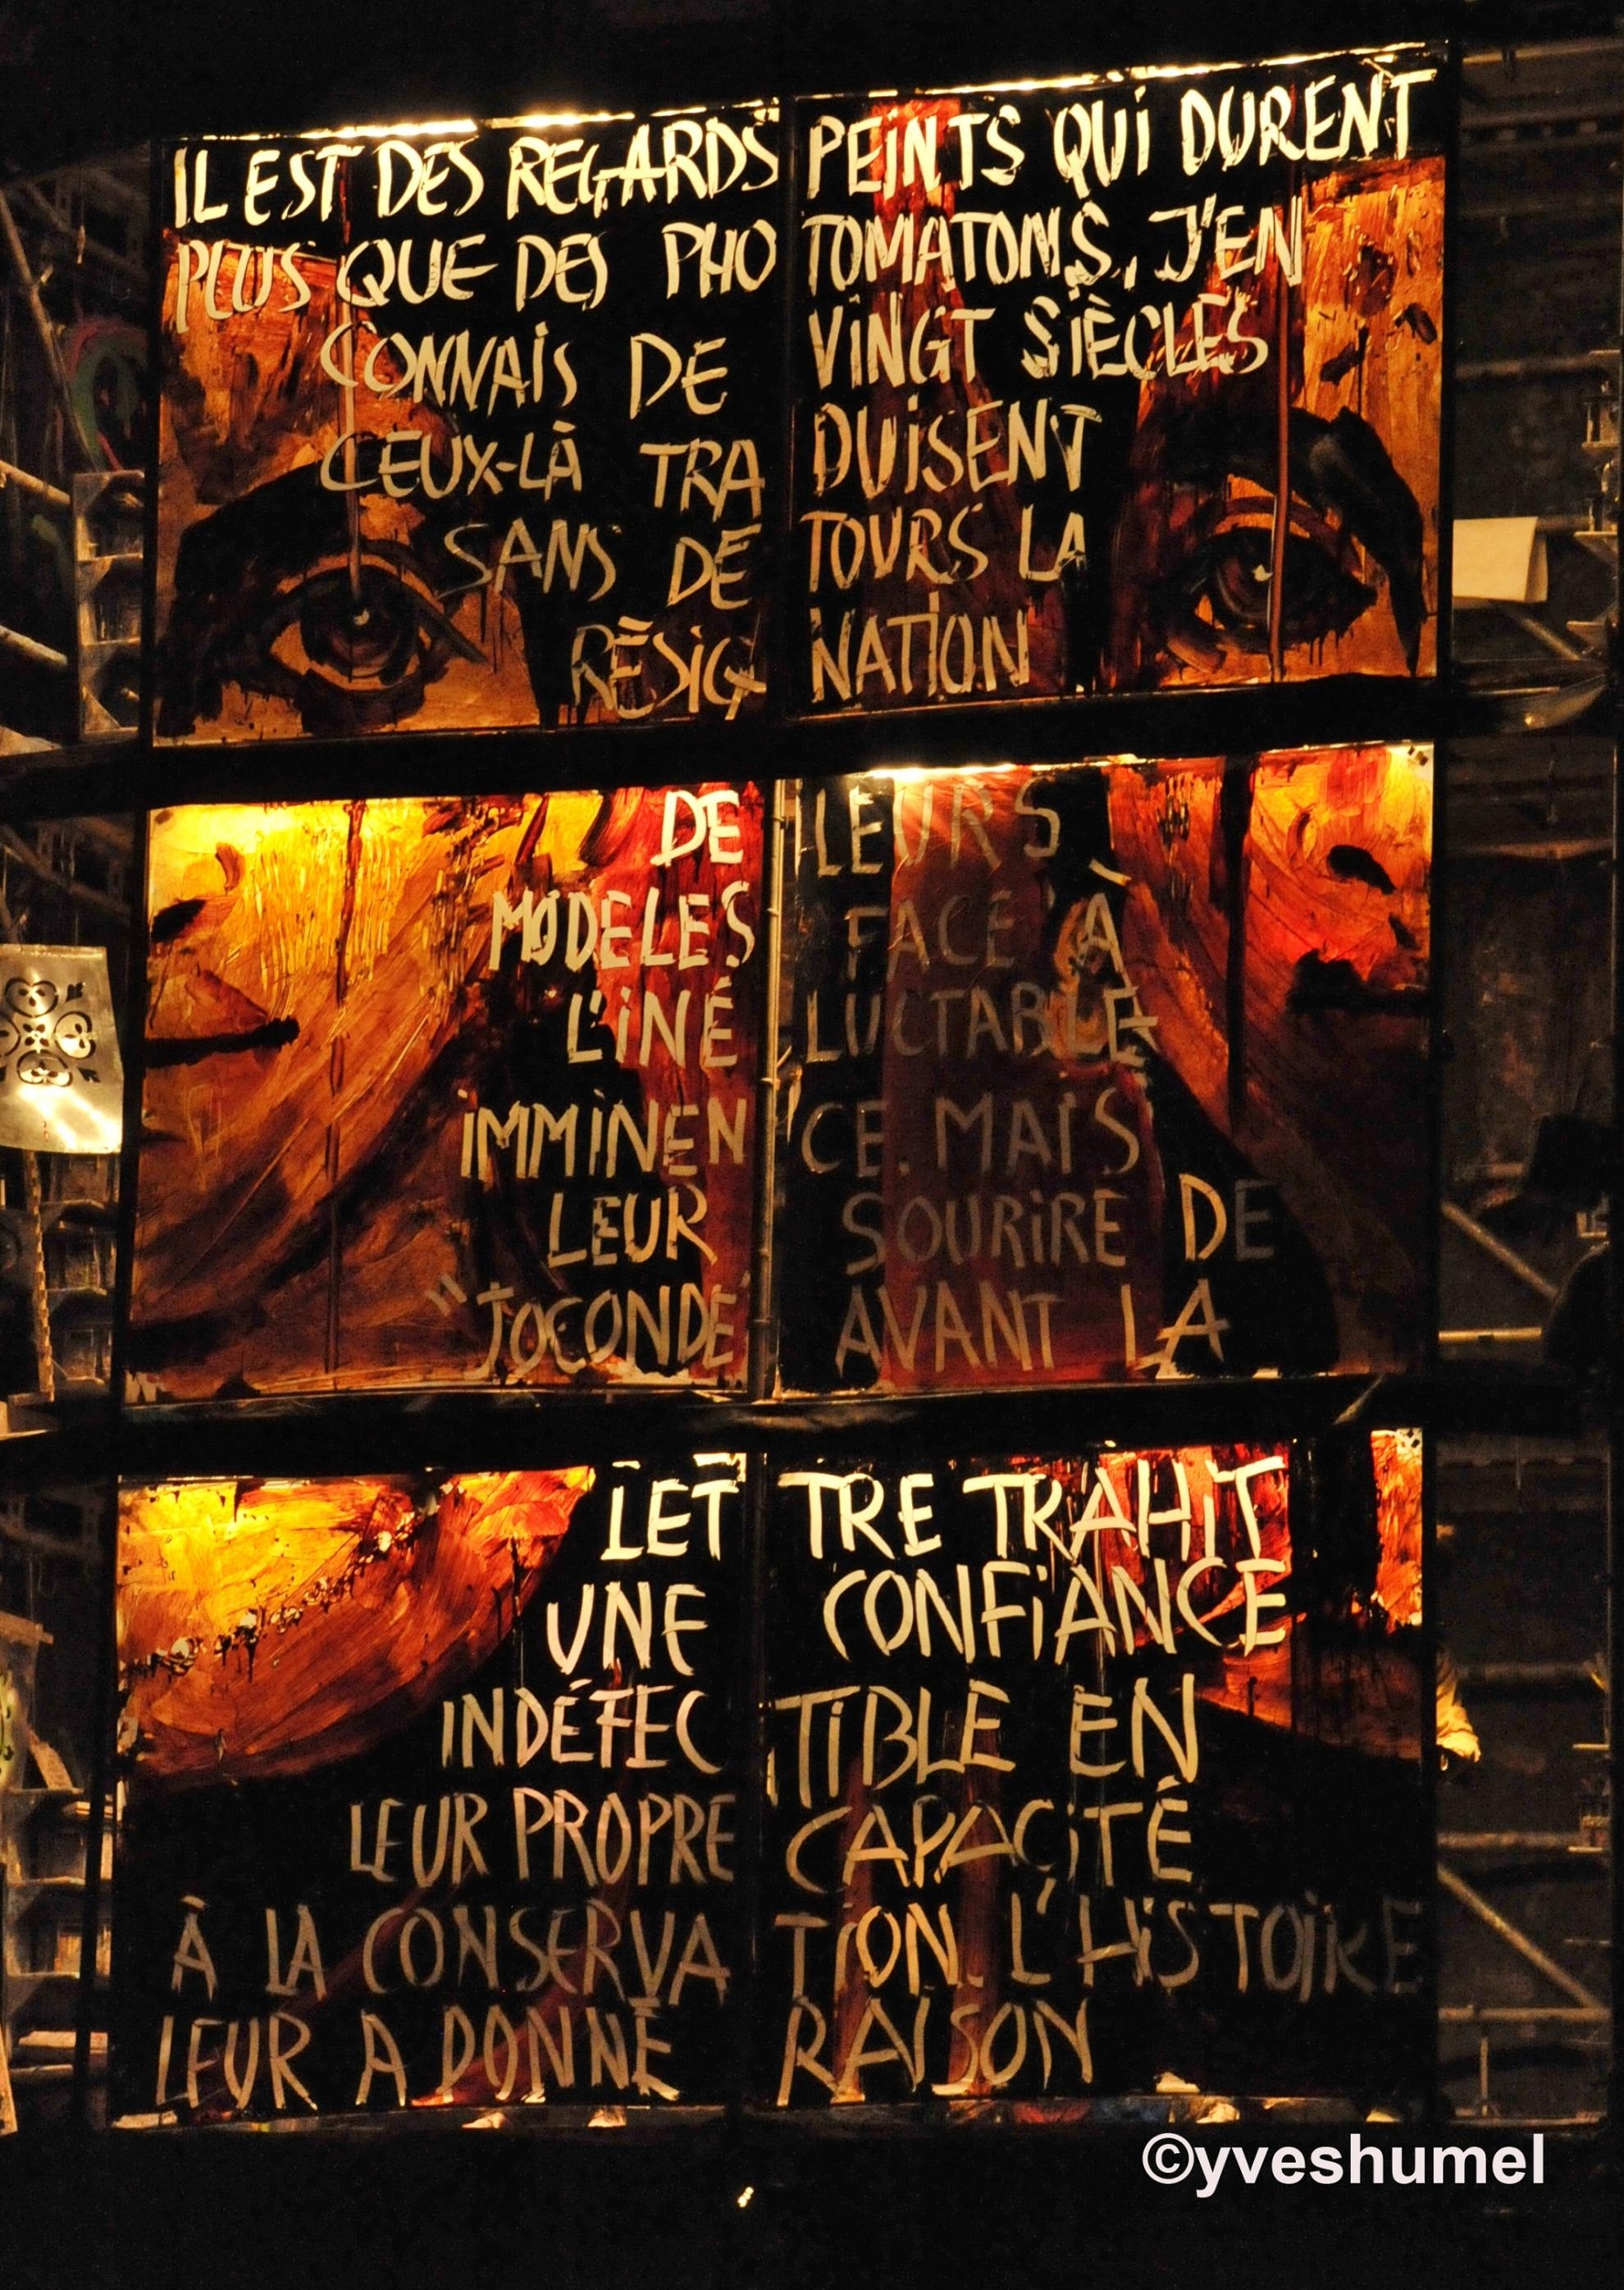 IL EST DES REGARDS PEINTS QUI DURENT
PLUS QUE DES PHOTOMATONS, J'EN
CONNAIS DE VINGT SIÈCLES
CEUX-LÀ TRADUISENT
SANS DETOURS LA
RÉSIGNATION
DE LEURS
MODELES FACE À
L'INÉLUCTABLE
IMMINENCE. MAIS
LEUR SOURIRE DE
"JOCONDE AVANT LA
LETTRE TRAHIT
UNE CONFIANCE
INDÉFECTIBLE EN
LEUR PROPRE CAPACITÉ
À LA CONSERVATION. L'HISTOIRE
LEUR A DONNÉ RAISON
©yveshumel